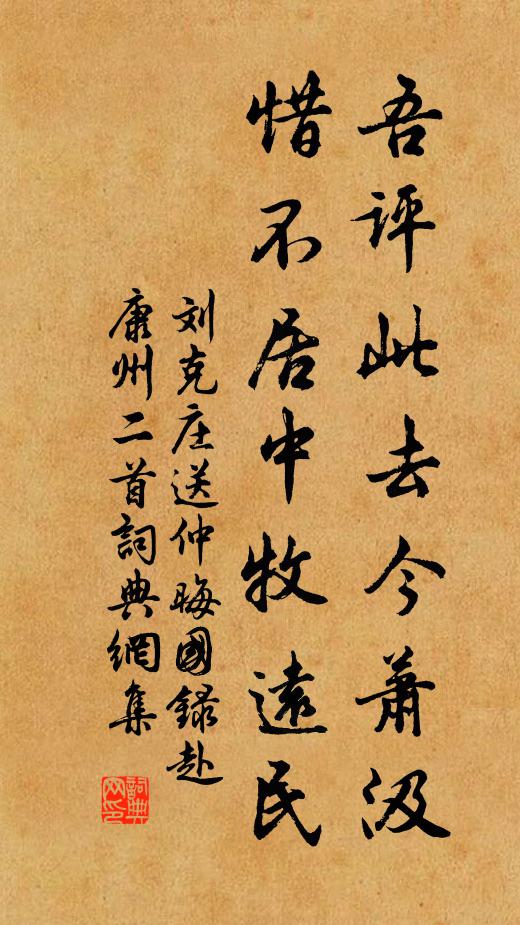 吾評此去今蕭汲
惜不居中牧遠民
刘克庄送仲晦國錄赴
康州二首詞典網集
詞典网印